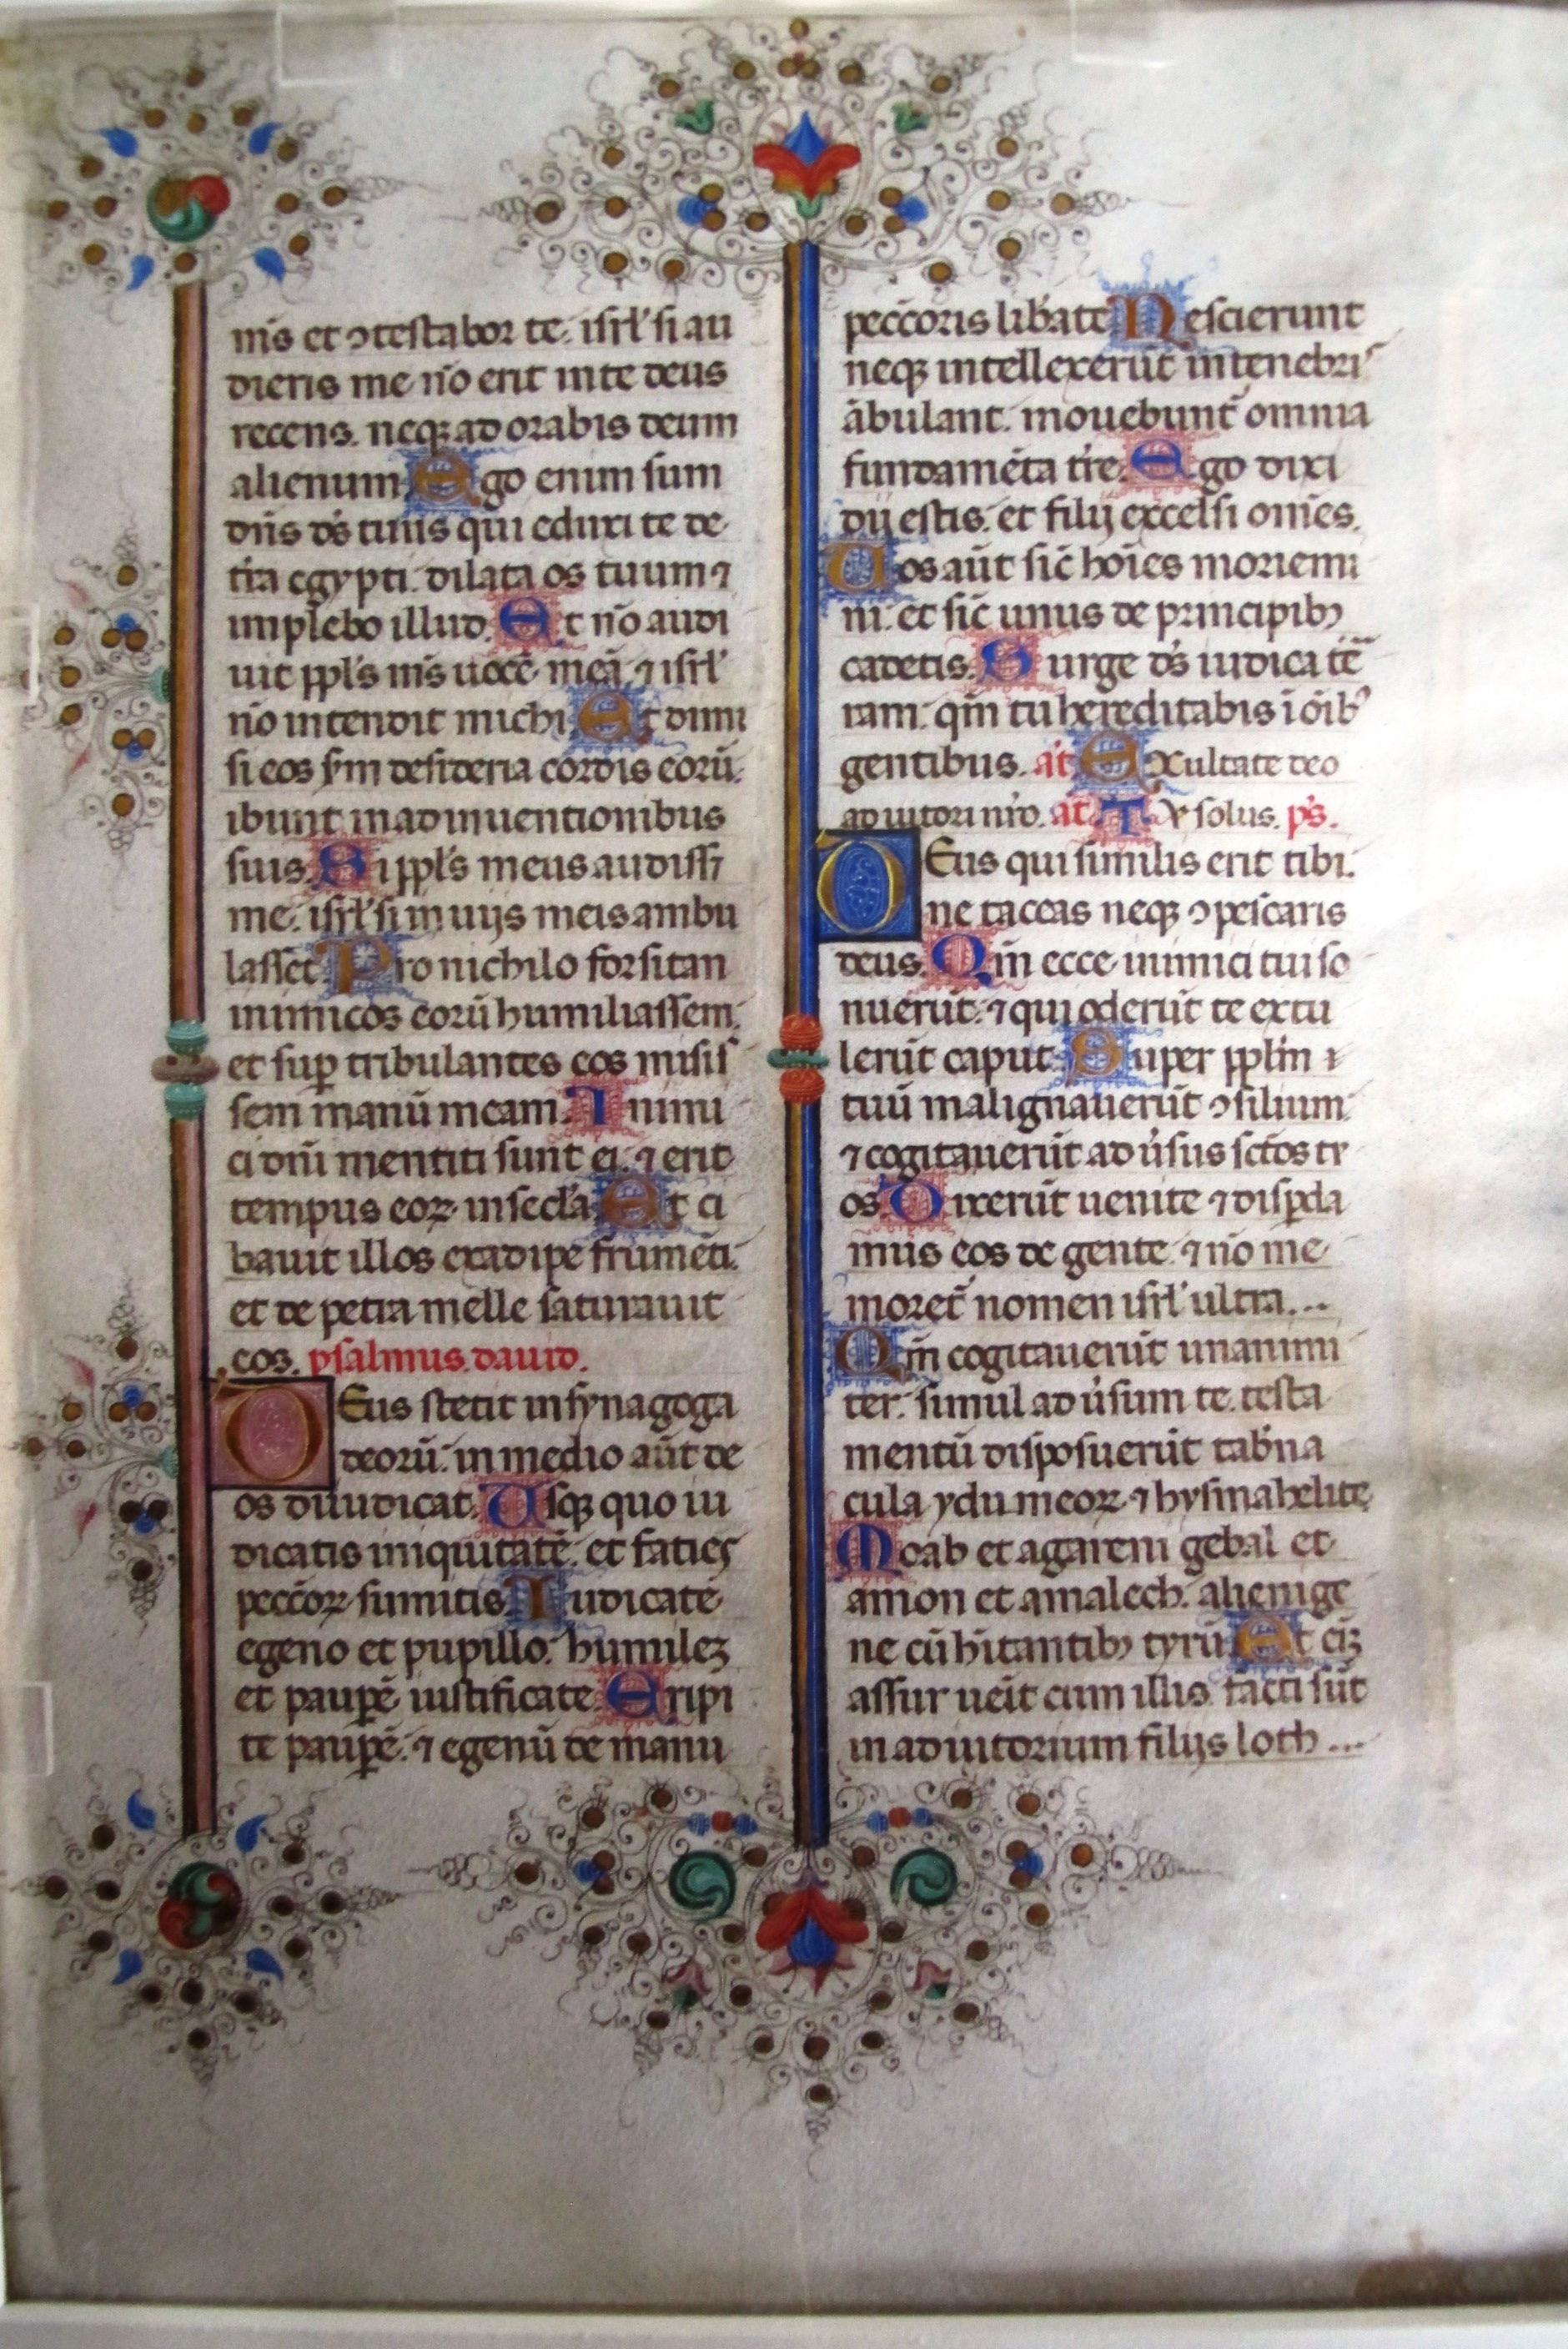 m̄s et ꝯtestabor te. isrł si au
dieris me nō erit in te deus
recens. neqꝫ adorabis deum
alienum. Ego enim sum
dn̄s ds̄ tuus qui eduxi te de
tr̄a egypti. dilata os tuum ⁊
implebo illud. Et nō audi
uit ppl̄s m̄s uocē meā. ⁊ isrł
nō intendit michi. Et dimi
si eos sm̄ desideria cordis eorū.
ibunt in adinuentionibus
suis. Si ppl̄s meus audissꝫ
me. isrł si in uijs meis ambu
lasset. Pro nichilo forsitan
inimicos eorū humiliassem.
et sup̄ tribulantes eos misis
sem manū meam. Inimi
ci dn̄i mentiti sunt ei. ⁊ erit
tempus eoꝝ in secl̄a. Et ci
bauit illos ex adipe frumēti.
et de petra melle saturauit
eos. psalmus dauid.
DEus stetit in synagoga
deorū. in medio aūt de
os diiudicat. Usqꝫ quo iu
dicatis iniquitatē. et facies
pecc̄oꝝ sumitis. Iudicate
egeno et pupillo. humileꝫ
et paupē iustificate. Eripi
te paupē. ⁊ egenū de manu
pecc̄oris lib̄ate. Nescierunt
neqꝫ intellexerūt in tenebris
ābulant. mouebunt̄ omnia
fundamēta tr̄e. Ego dixi
dij estis. et filij excelsi om̄es.
Uos aūt sic̄ hoīes moriemi
ni. et sic̄ unus de principibꝫ
cadetis. Surge ds̄ iudica tē
ram. qm̄ tu hereditabis ī oībꝫ
gentibus. at̄ Exultate deo
adiutori nr̄o. at̄ Tv solus. ps̄.
DEus qui similis erit tibi.
ne taceas neqꝫ ꝯpescaris
deus. Qm̄ ecce inimici tui so
nuerūt. ⁊ qui oderūt te extu
lerūt caput. Super ppl̄m
tuū malignauerūt ꝯsilium.
⁊ cogitauerūt adus̄us sc̄tos tv
os. Dixerūt uenite ⁊ disp̄da
mus eos de gente. ⁊ nō me
moret̄ nomen isrł ultra...
Qm̄ cogitauerūt unanimi
ter. simul adus̄um te. testa
mentū disposuerūt tab̄na
cula ydumeoꝝ ⁊ hysmahelite
Moab et agareni gebal et
amon et amalech. alienige
ne cū hītantibꝫ tyrū. Et eiꝫ
assur uēit cum illis. facti sūt
in adiutorium filijs loth...